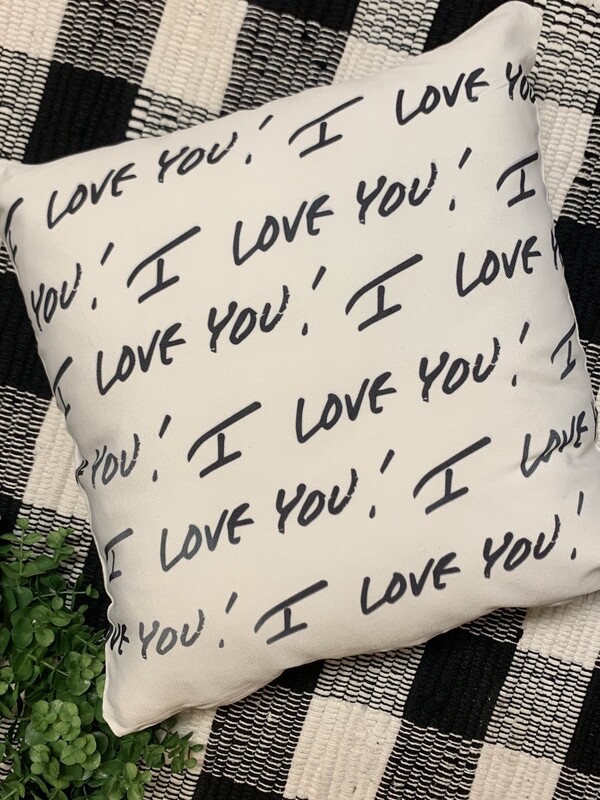 I LOVE YOU! I LOVE YOU
YOU! I LOVE YOU! I
I LOVE YOU! I LOVE
YOU! I LOVE YOU! I
I LOVE YOU! I LOVE
YOU! I LOVE YOU!